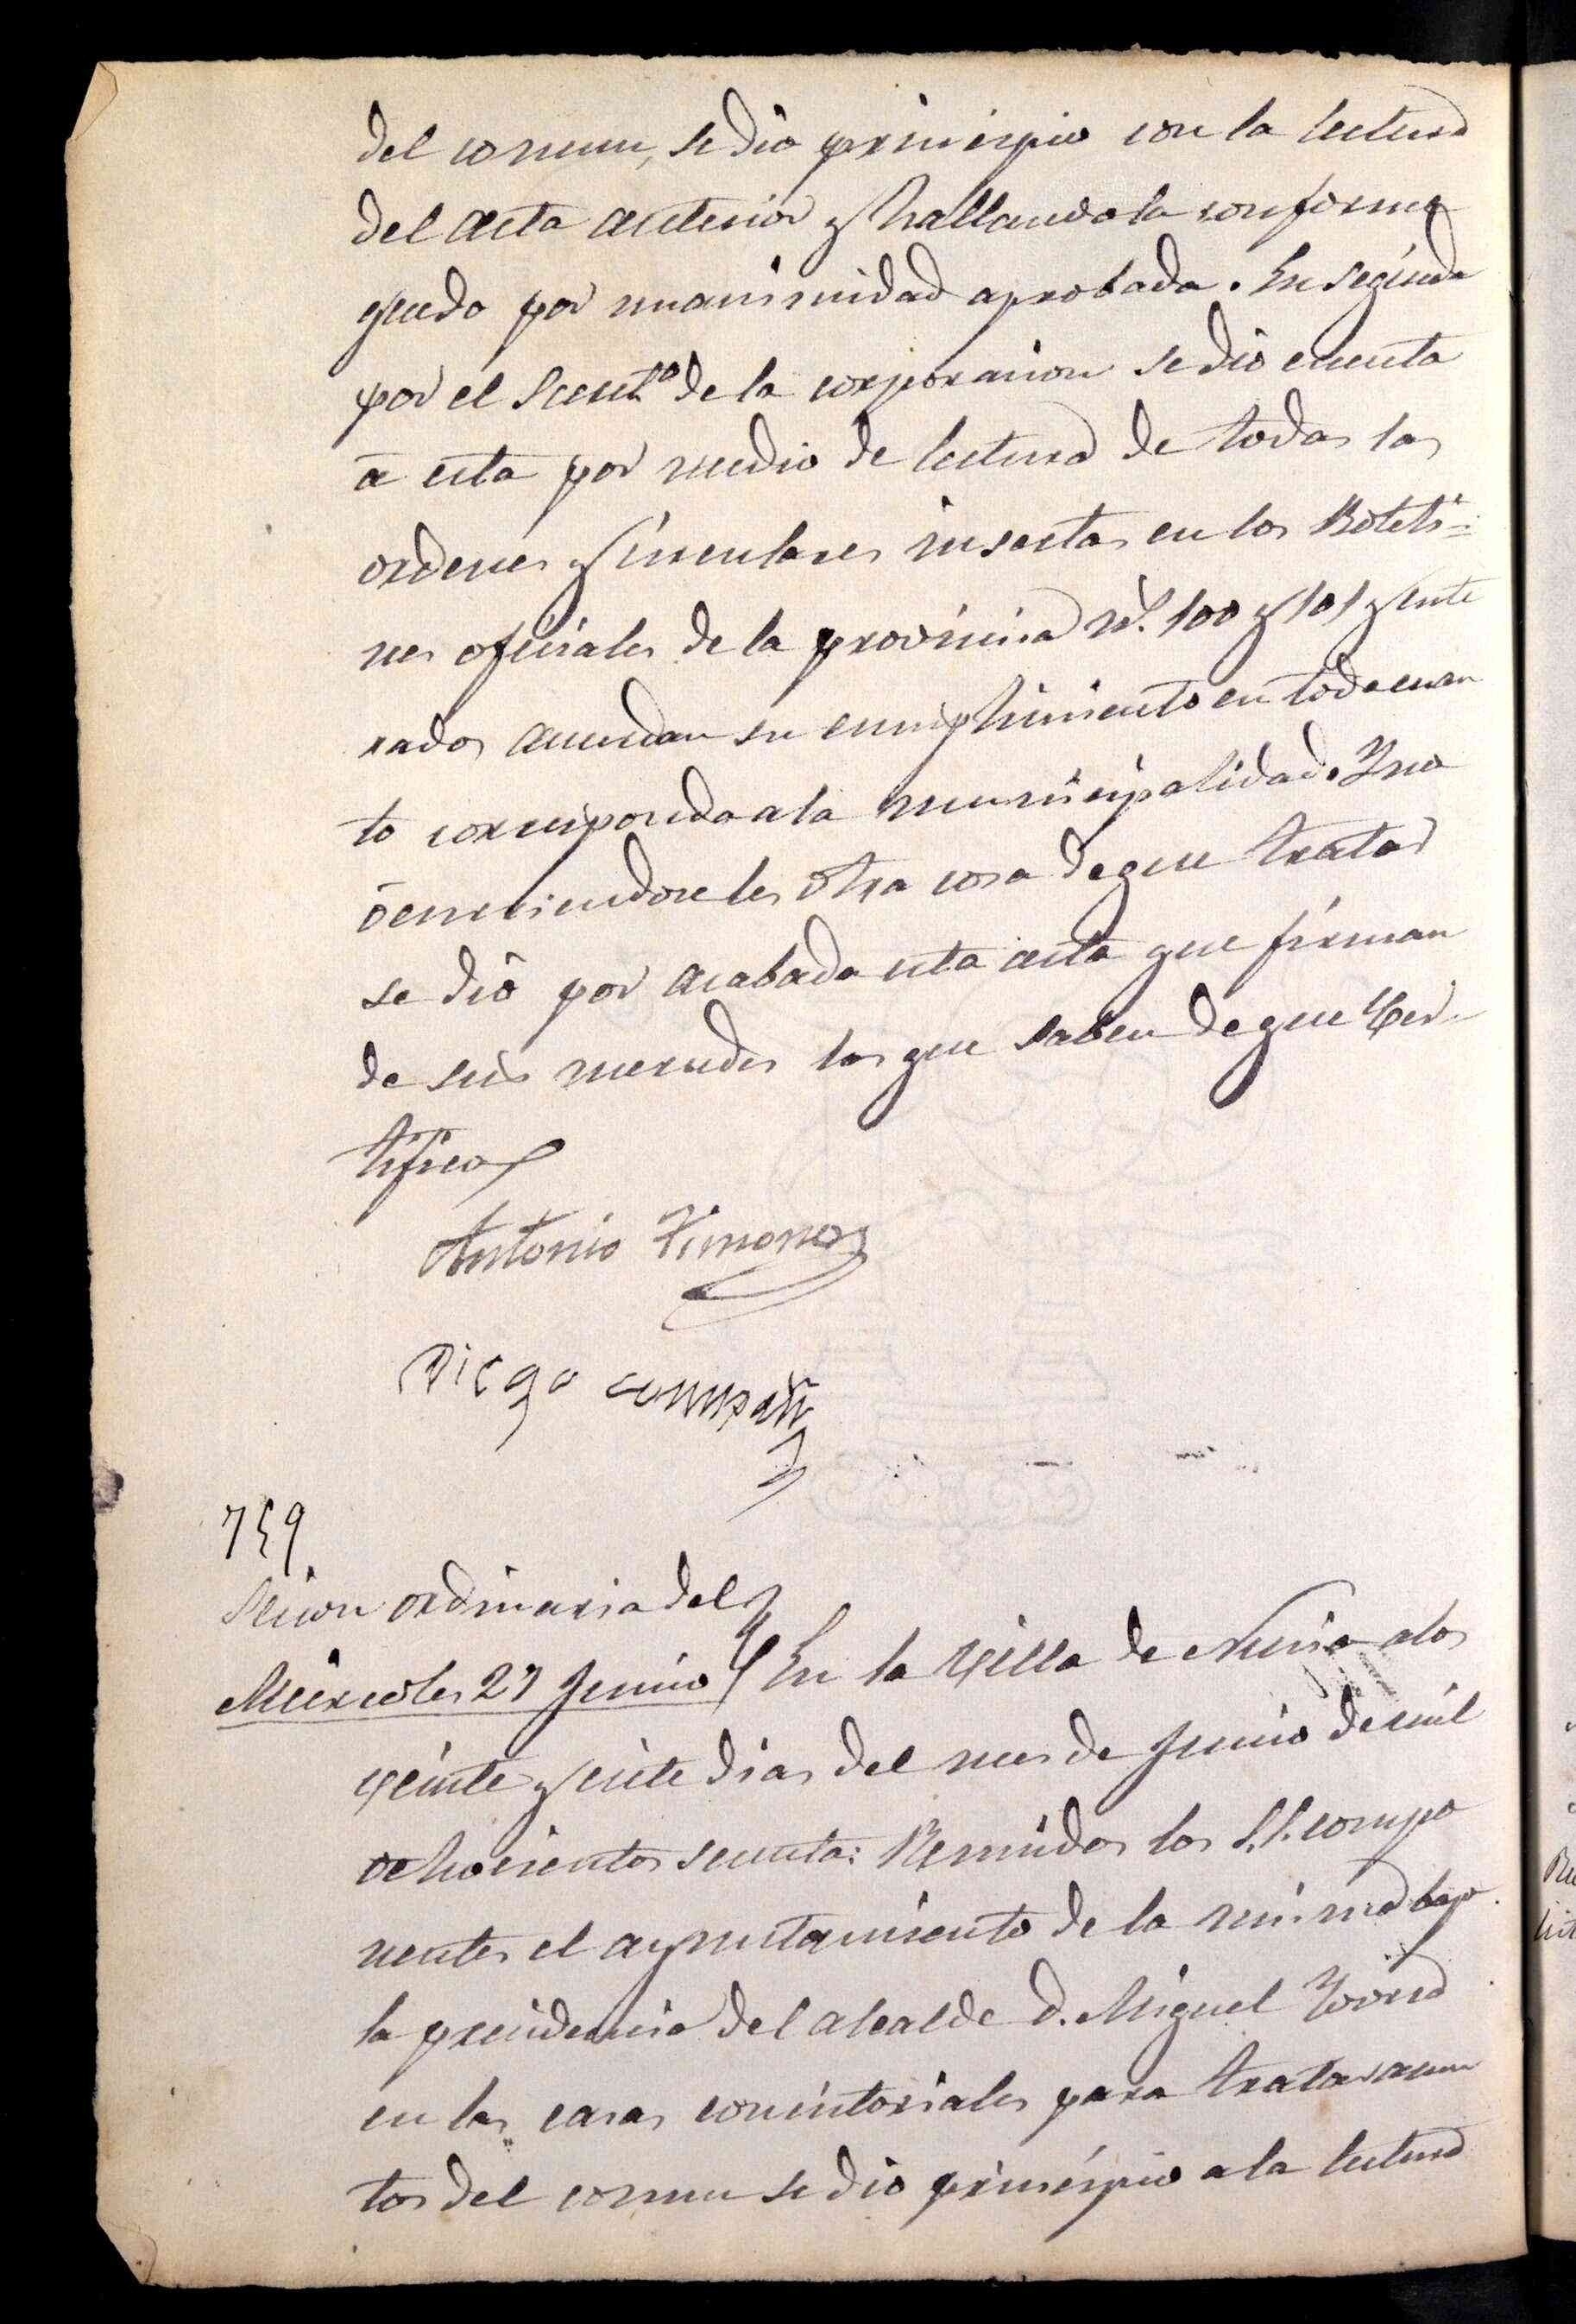 del comun, se dio principio con la lectura
del acta anterior y hallandola conforme
quedo por unanimidad aprobada. En seguida
por el Secret.º de la corporacion se dio cuenta
a esta por medio de lectura de todas las
ordenes y circulares insertas en los Boleti=
nes oficiales de la provincia n.s 100 y 101 y ente
rados acuerdan su cumplimiento en todo cuan
to corresponda a la municipalidad. Y no
ocurriendoseles otra cosa de que tratar
se dió por acabada esta acta que firman
de sus mercedes los que saben de que Cer-
tifico
Antonio Ximenez
Diego
759
Sesion ordinaria del
Miercoles 27 Junio } En la Villa de Nucia a los
veinte y siete dias del mes de Junio de mil
ochocientos sesenta: Reunidos los S.S. compo
nentes el ayuntamiento de la misma bajo
la presidencia del alcalde D. Miguel
en las casas consistoriales para tratar asun
tos del comun se dio principio a la lectura